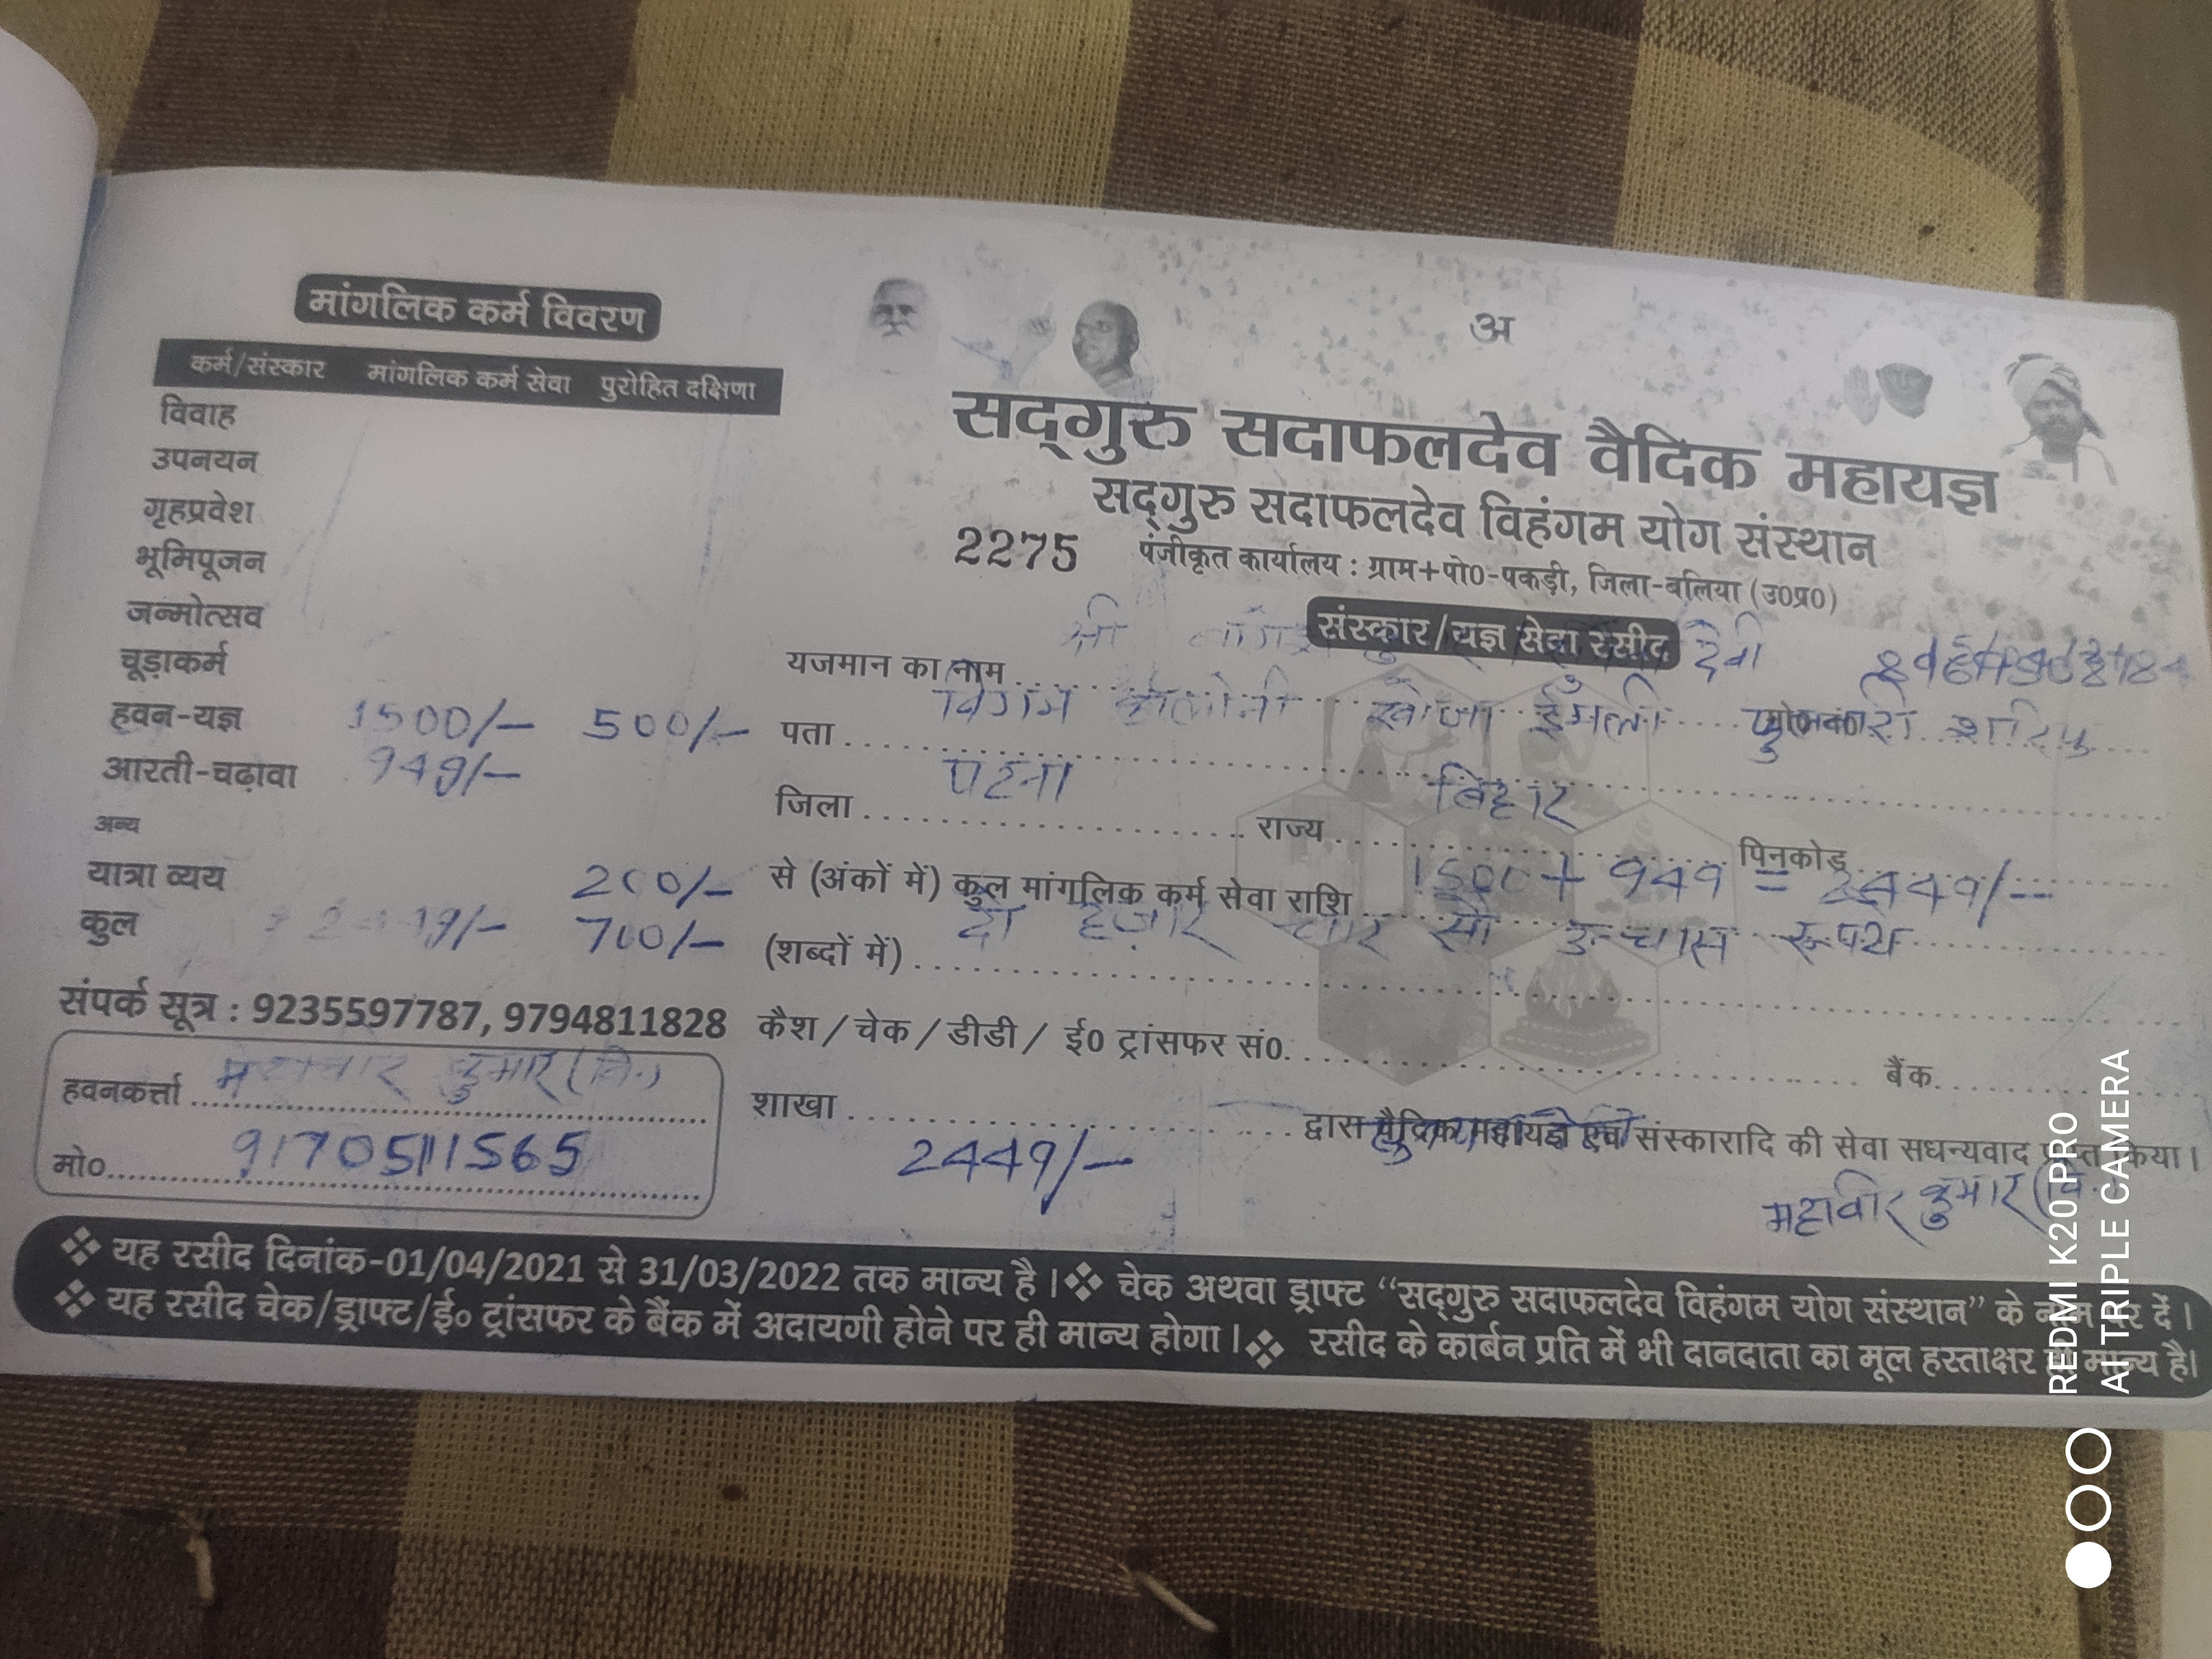 मांगलिक कर्म विवरण
कर्म/संस्कार मांगलिक कर्म सेवा पुरोहित दक्षिणा
विवाह
उपनयन
गृहप्रवेश
भूमिपूजन
जन्मोत्सव
चूड़ाकर्म
हवन-यज्ञ 1500/- 500/-
आरती-चढ़ावा 949/-
अन्य
यात्रा व्यय 200/-
कुल 2449/- 700/-
संपर्क सूत्र : 9235597787, 9794811828
हवनकर्त्ता महावीर कुमार (वि.)
मो० 9170511565
अ
सद्गुरु सदाफलदेव वैदिक महायज्ञ
सद्गुरु सदाफलदेव विहंगम योग संस्थान
2275 पंजीकृत कार्यालय : ग्राम+पो0-पकड़ी, जिला-बलिया (उ0प्र0)
संस्कार/यज्ञ सेवा रसीद
यजमान का नाम श्री देवी
पता कोलोनी खोजा ईमली शरिफ
जिला पटना राज्य बिहार पिनकोड
से (अंकों में) कुल मांगलिक कर्म सेवा राशि 1500 + 949 = 2449/-
(शब्दों में) दो हजार चार सौ उन्चास रूपये
कैश / चेक / डीडी / ई0 ट्रांसफर सं0. बैंक
शाखा द्वारा वैदिक महायज्ञ एवं संस्कारादि की सेवा सधन्यवाद प्राप्त किया।
2449/-
महावीर कुमार (वि.
❖ यह रसीद दिनांक-01/04/2021 से 31/03/2022 तक मान्य है। ❖ चेक अथवा ड्राफ्ट “सद्गुरु सदाफलदेव विहंगम योग संस्थान” के नाम पर दें।
❖ यह रसीद चेक/ड्राफ्ट/ई० ट्रांसफर के बैंक में अदायगी होने पर ही मान्य होगा। ❖ रसीद के कार्बन प्रति में भी दानदाता का मूल हस्ताक्षर ही मान्य है।
REDMI K20 PRO
AI TRIPLE CAMERA